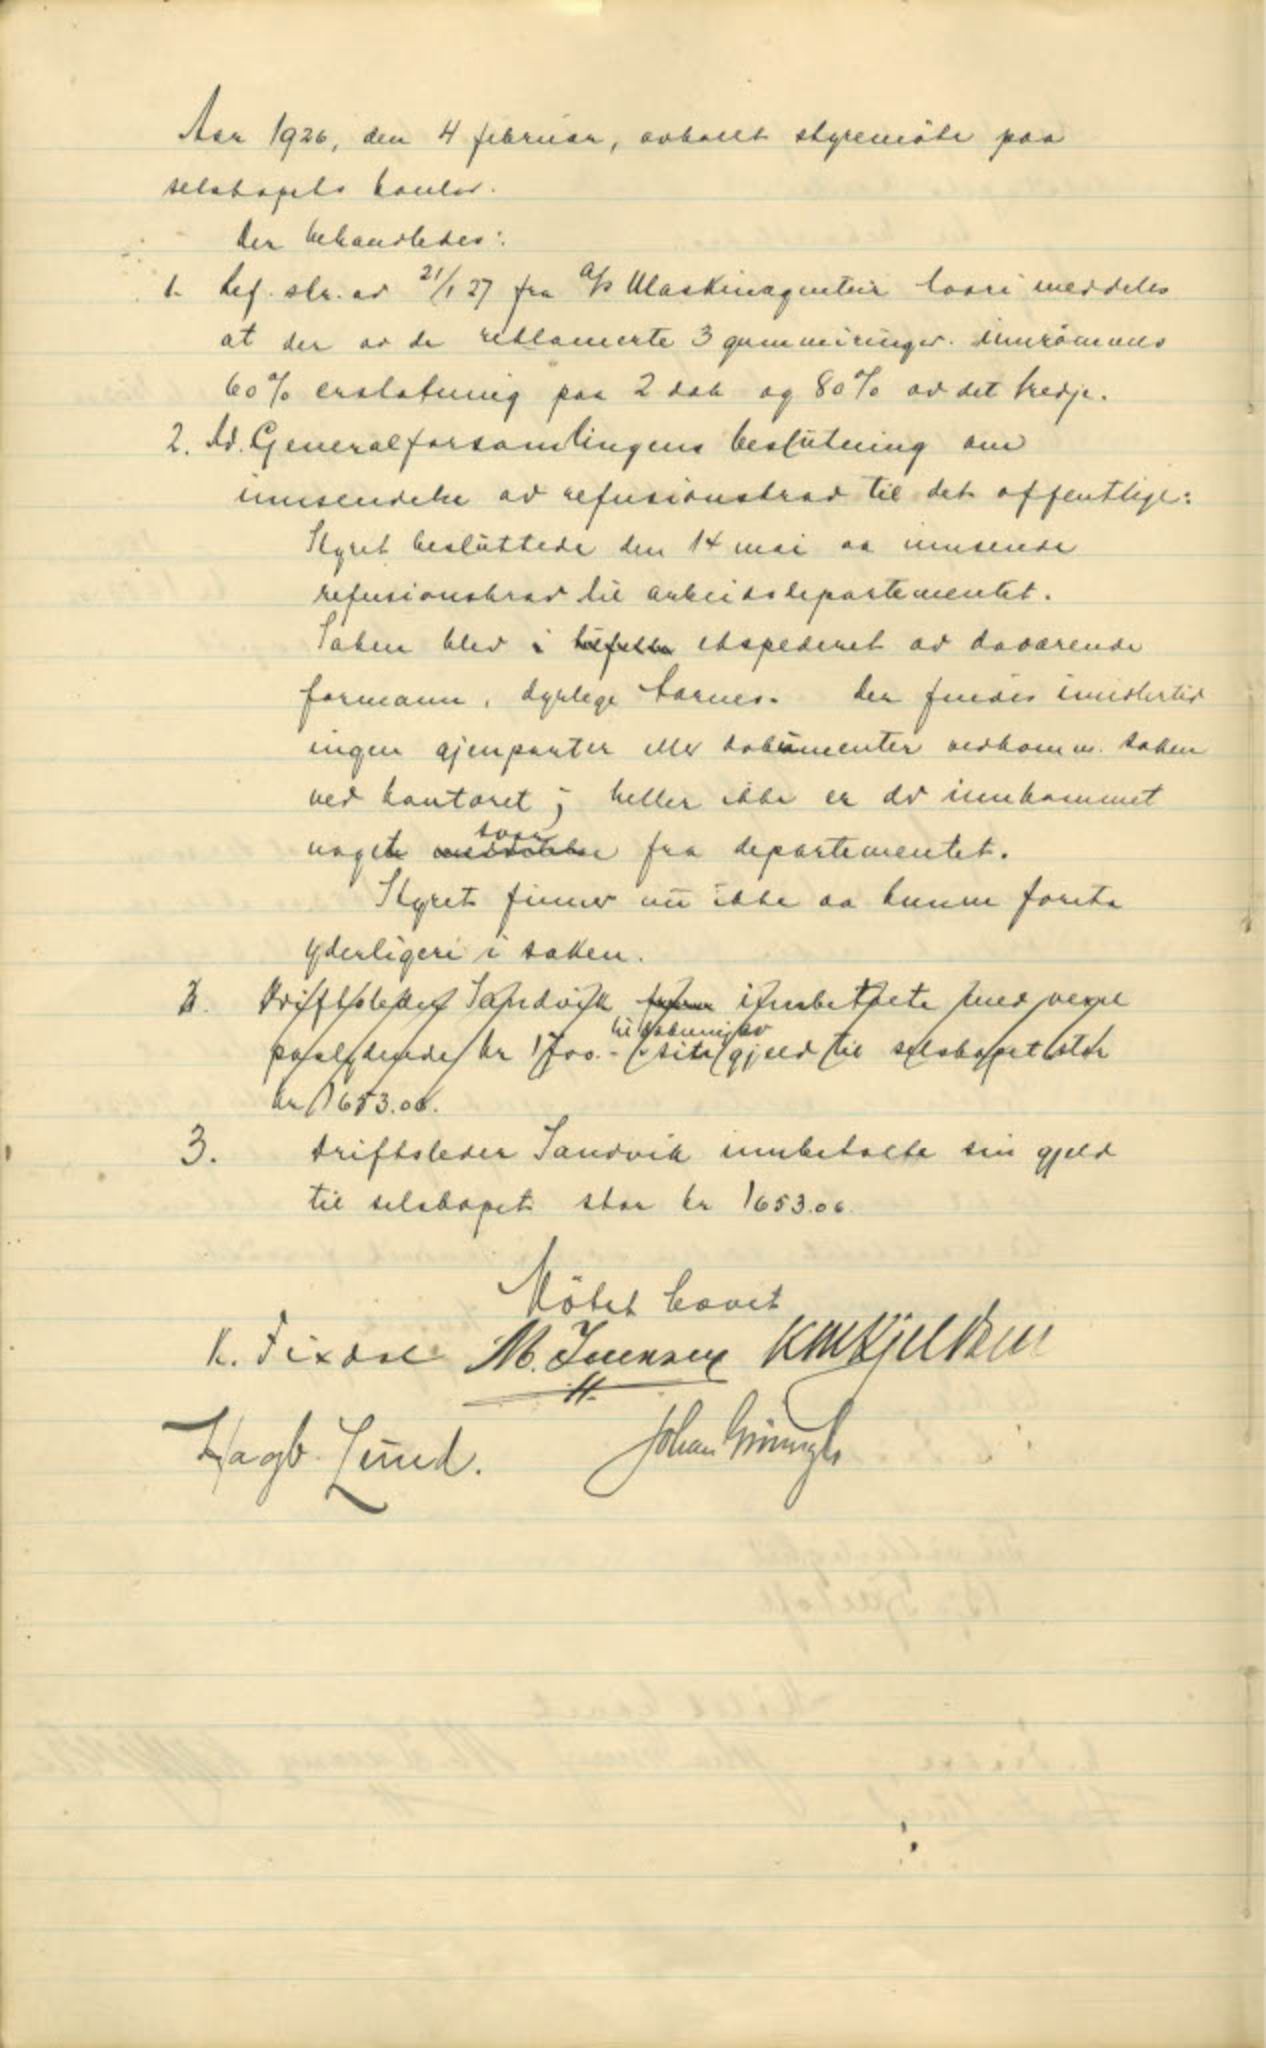 Aar 1926, den 4 februar, avholdt styremöte paa
selskapets kontor.
Der behandledes:
1. Ref. skr. av 21/1 27 fra A/S Maskinagentur hvori meddeles
at der av de reklamerte 3 gummiringer innrömmes
60% erstatning paa 2 dæk og 80% av det tredje.
2. Ad. Generalforsamlingens beslutning om
innsendelse av refusionskrav til det offentlige:
Styret besluttede den 14 mai aa innsende
refusionskrav til arbeidsdepartementet.
Saken blev i ekspederet av daværende
formann, dyrlege Aarnes. Der findes imidlertid
ingen gjenparter eller dokumenter vedkomm. saken
ved kontoret; heller ikke er der innkommet
noget svar fra departementet.
Styret finner nu ikke aa kunne foreta
yderligere i saken.
3. Driftsleder Sandvik innbetalte med vexel
paalydende kr 1700.- til dækning av sin gjeld til selskapet stor
kr 1653.06.
3. Driftsleder Sandvik innbetalte sin gjeld
til selskapet stor kr 1653.06.
Mötet hævet
K. Fixdal M. Iversen KMKjeldsen
Hagb. Lund. Johan